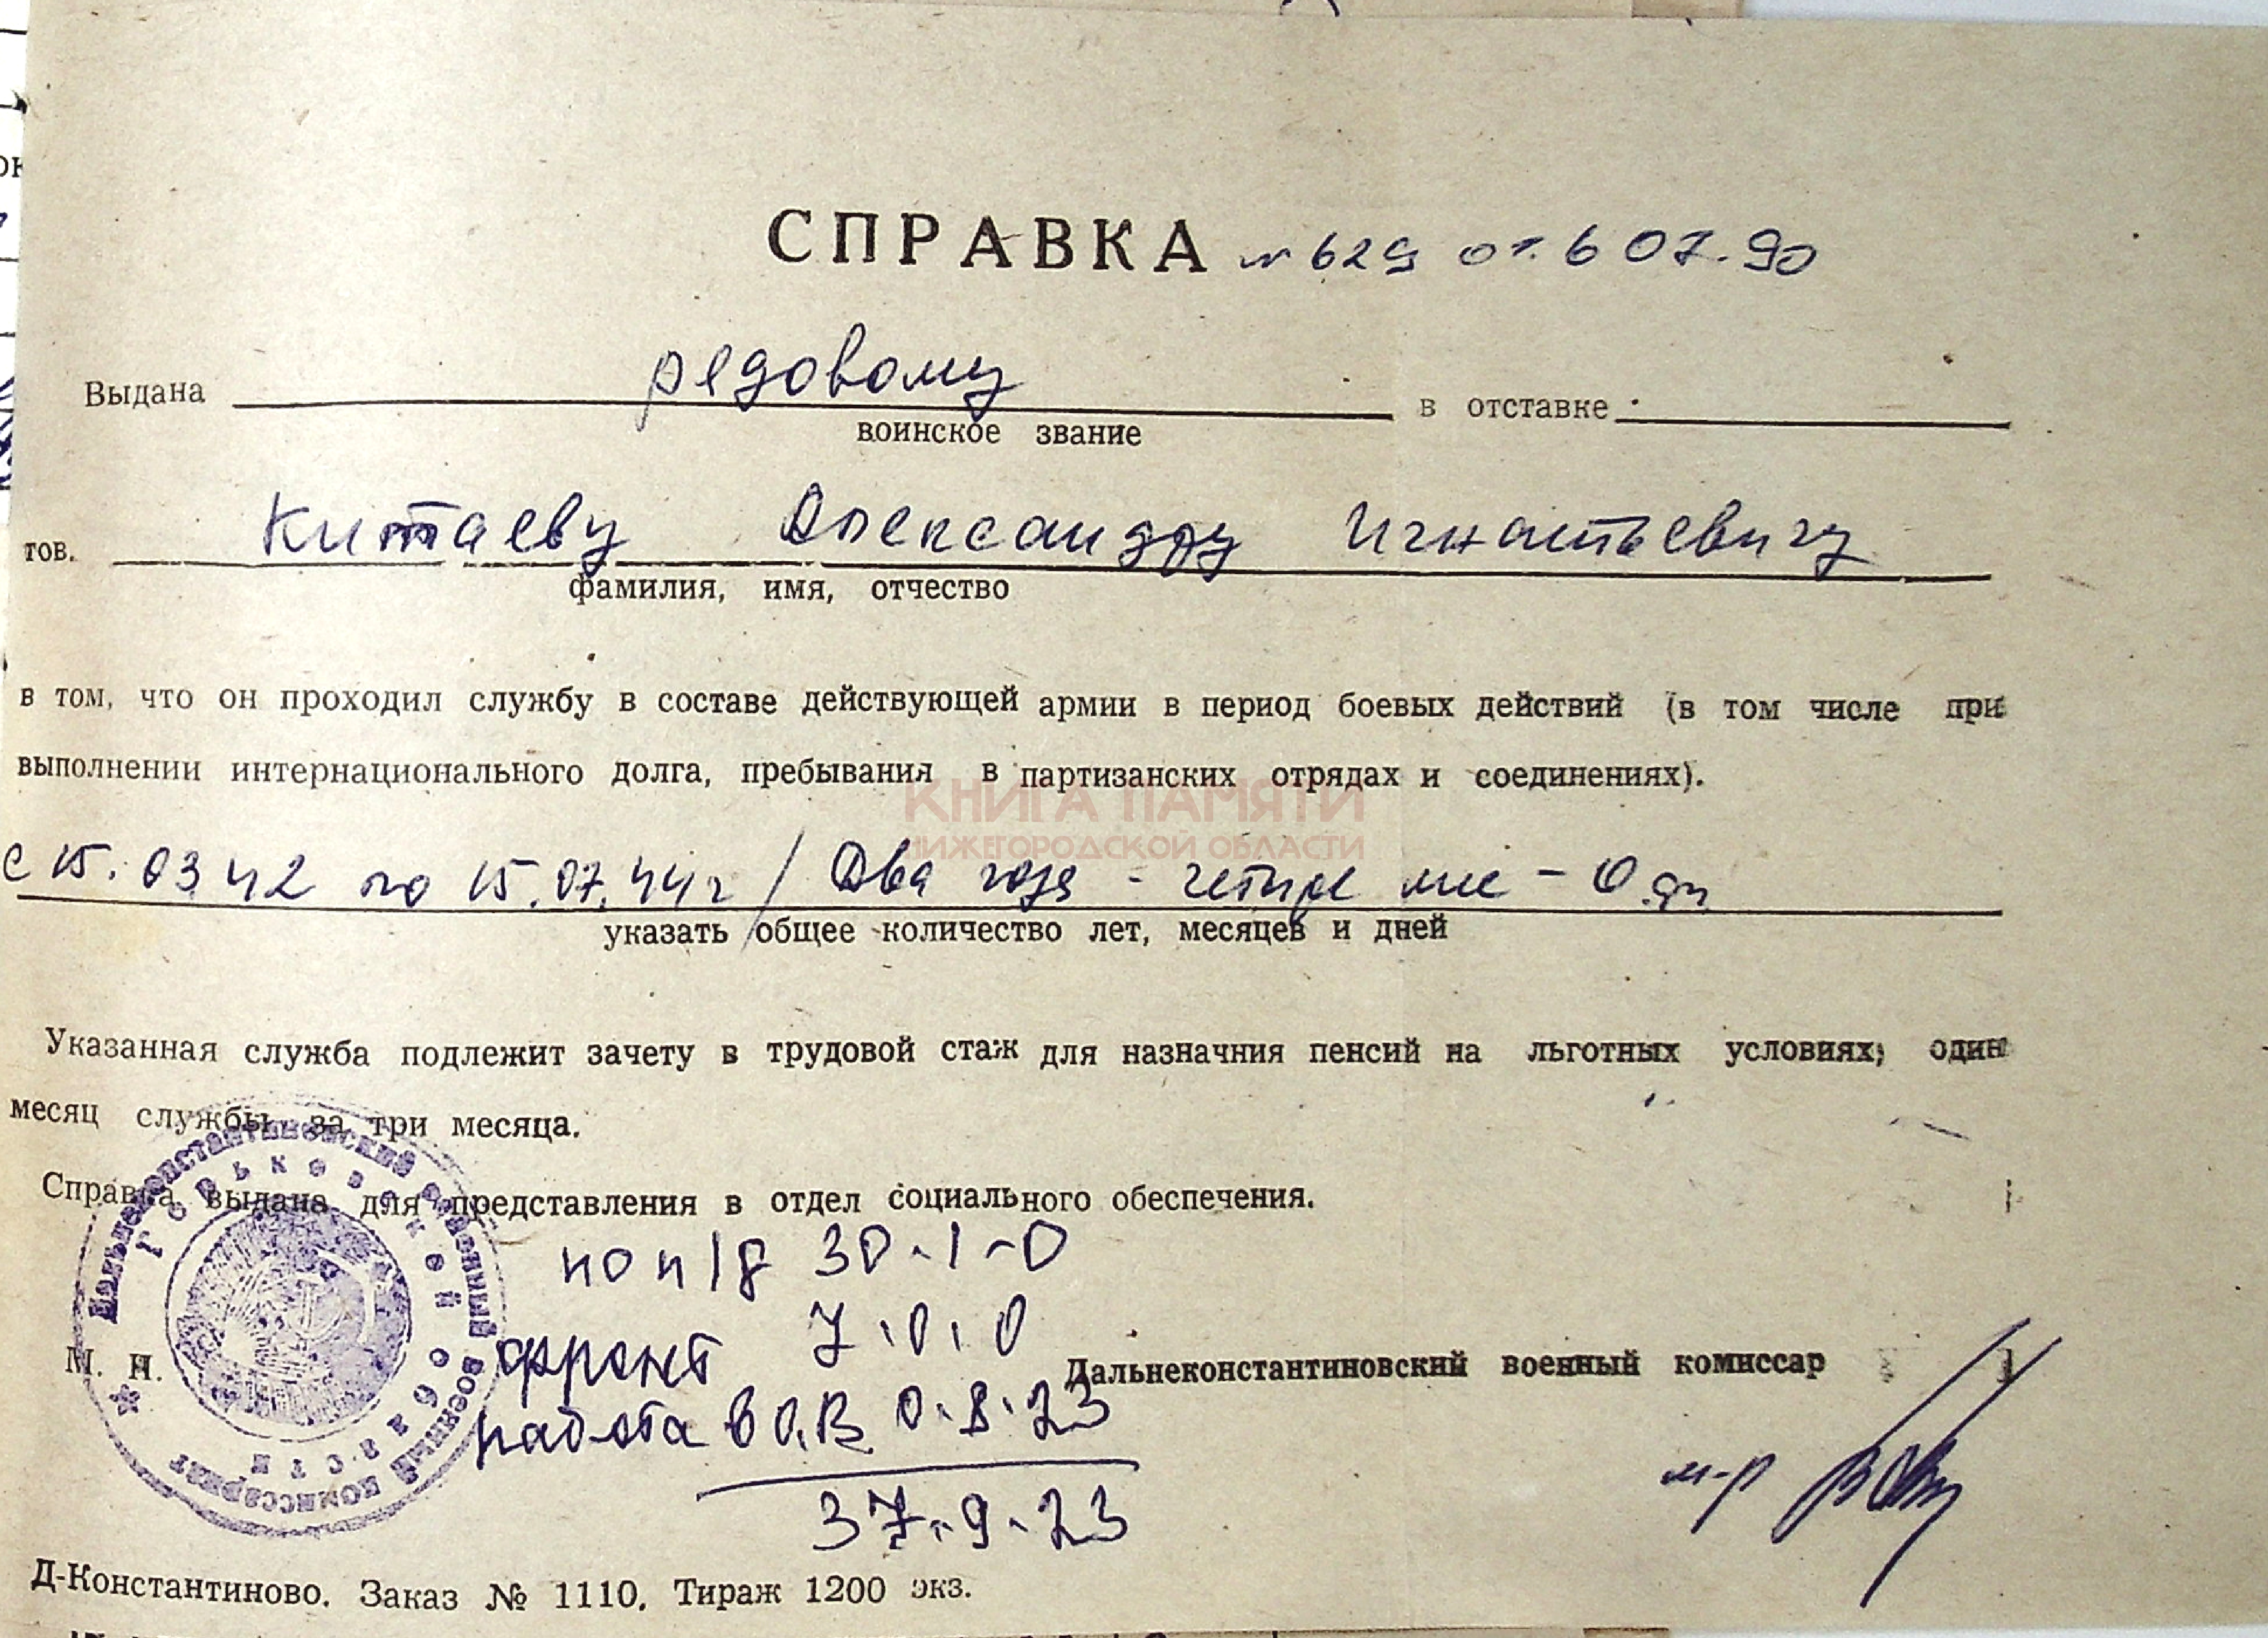 СПРАВКА № 629 от. 6 07.90
Выдана редовому в отставке
воинское звание
тов. Китаеву Александру Игнатьевичу
фамилия, имя, отчество
в том, что он проходил службу в составе действующей армии в период боевых действий (в том числе при
выполнении интернационального долга, пребывания в партизанских отрядах и соединениях).
КНИГА ПАМЯТИ
НИЖЕГОРОДСКОЙ ОБЛАСТИ
с 15.03.42 по 15.07.44г / Два года - четыре мес - 0 дн
указать общее количество лет, месяцев и дней
Указанная служба подлежит зачету в трудовой стаж для назначния пенсий на льготных условиях; один
месяц службы за три месяца.
Справка выдана для представления в отдел социального обеспечения.
Дальнеконстантиновский военный комиссариат
Горьковской области
по 30-1-0
фронт 7.0.0
М. П.
Дальнеконстантиновский военный комиссар
работа в О.В. 0.8.23
м-р
37.9.23
Д-Константиново. Заказ № 1110. Тираж 1200 экз.